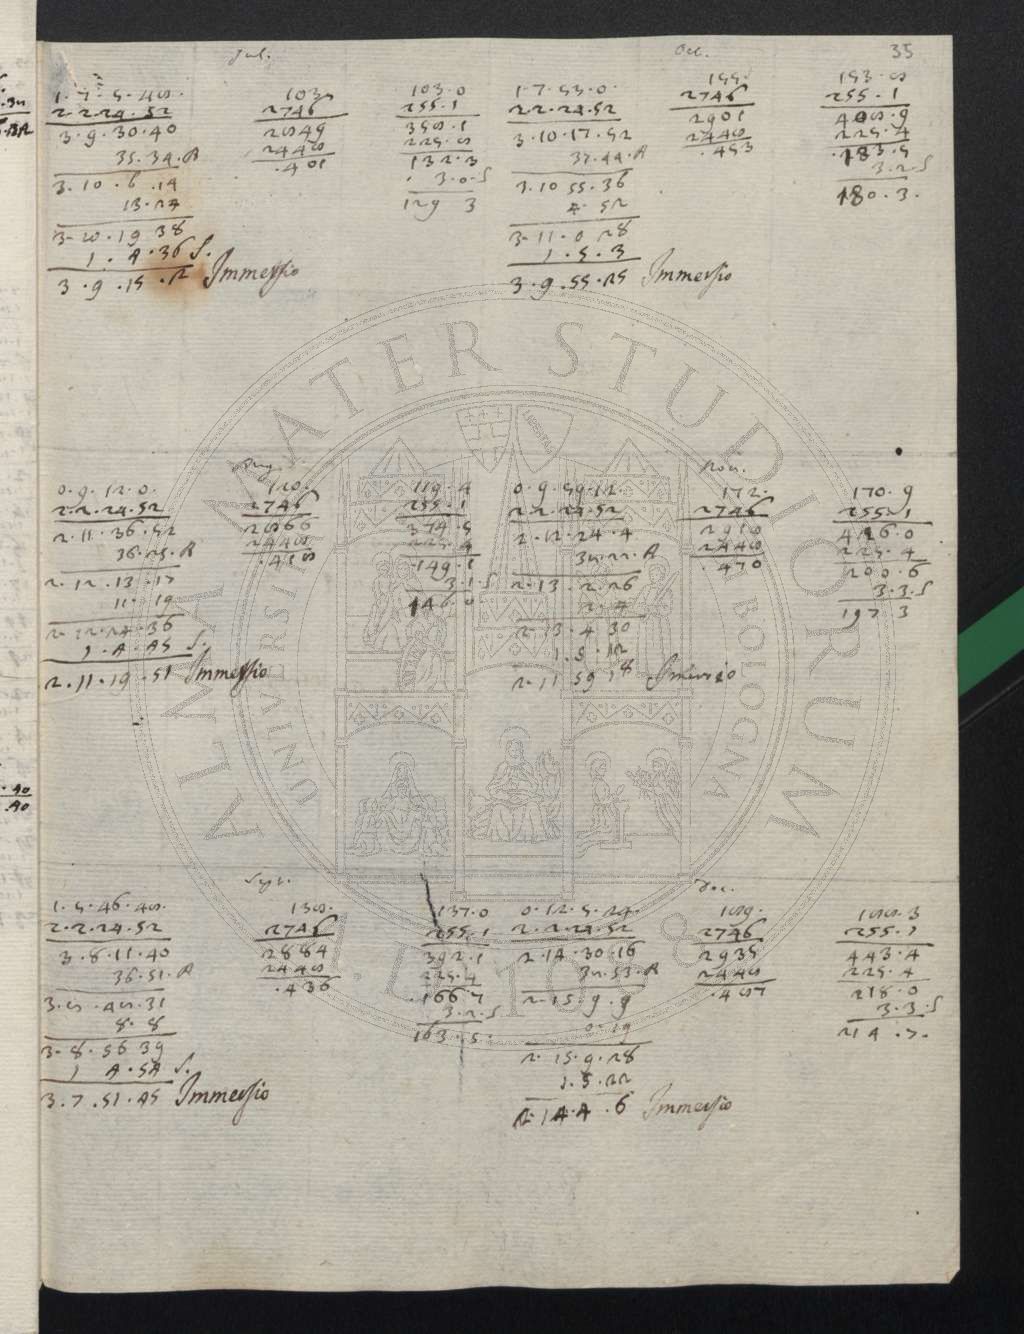 35
Jul.
1.7.5.48.
2.2.24.52
3.9.30.40
35.34.A
3.10.6.14
13.24
3.10.19 38
1.4.36 S.
3.9.15.2 Immersio
103
2746
2849
2448
.401
103.0
255.1
358.1
225.8
132.3
3.0.S
129 3
Oct.
1.7.53.0.
2.2.24.52
3.10.17.52
37.44.A
3.10 55.36
4.52
3.11.0 28
1.5.3
3.9.55.25 Immersio
155.
2746
2901
2448
.453
153.8
255.1
408.9
225.4
.183.5
3.2.S
180.3.
Aug.
0.9.12.0.
2.2.24.52
2.11.36.52
36.25.A
2.12.13.17
11.19
2.12.24.36
1.4.45 S.
2.11.19.51 Immersio
120.
2746
2866
2448
.418
119.4
255.1
374.5
225.4
.149.1
3.1.S
146.0
Nov.
0.9.59.12.
2.2.24.52
2.12.24.4
38.22.A
2.13.2.26
2.4
2.13.4 30
1.5.12
2.11 59 18 Immersio
172.
2746
2918
2448
.470
170.9
255.1
426.0
225.4
200.6
3.3.S
197 3
Sept.
1.5.46.48.
2.2.24.52
3.8.11.40
36.51.A
3.8.48.31
8.8
3.8.56 39
1 4.54 S.
3.7.51.45 Immersio
138.
2746
2884
2448
.436
137.0
255.1
392.1
225.4
.166.7
3.2.S
163.5.
Dec.
0.12.5.24.
2.2.24.52
2.14.30.16
38.53.A
2.15.9.9
0.19
2.15.9.28
1.5.22
2.14.4.6 Immersio
189.
2746
2935
2448
.487
188.3
255.1
443.4
225.4
218.0
3.3.S
214.7.
ALMA MATER STUDIORUM
UNIVERSITÀ DI BOLOGNA
A.D. 1088